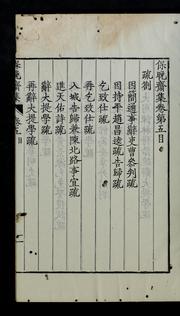 保晚齋集卷第五目
疏劄
因閣通事辭吏曹參判疏
因持平趙昌逵疏告歸疏
乞致仕疏
再乞致仕疏
入城告歸兼陳北路事宜疏
進天佑詩疏
辭大提學疏
再辭大提學疏
保晚齋集 卷五目 一